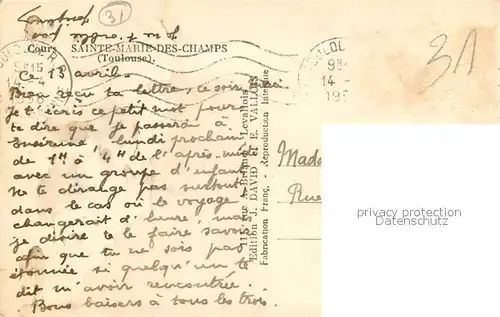 31
Cours SAINTE-MARIE-DES-CHAMPS
(Toulouse).
Ce 13 avril.
Bien reçu ta lettre, ce soir, aussi
je t'écris ce petit mot pour
te dire que je passerai à
lundi prochain
de 1H à 4H de l'après-midi
avec un groupe d'enfants.
Ne te dérange pas surtout
dans le cas où le voyage
changerait d'heure, mais
je désire te le faire savoir
afin que tu ne sois pas
étonnée si quelqu'un te
dit m'avoir rencontrée.
Bons baisers à tous les trois.
Edition J. DAVID et E. VALLOIS
Fabrication Franç. - Reproduction Interdite
31
Mada
Rue
privacy protection
Datenschutz